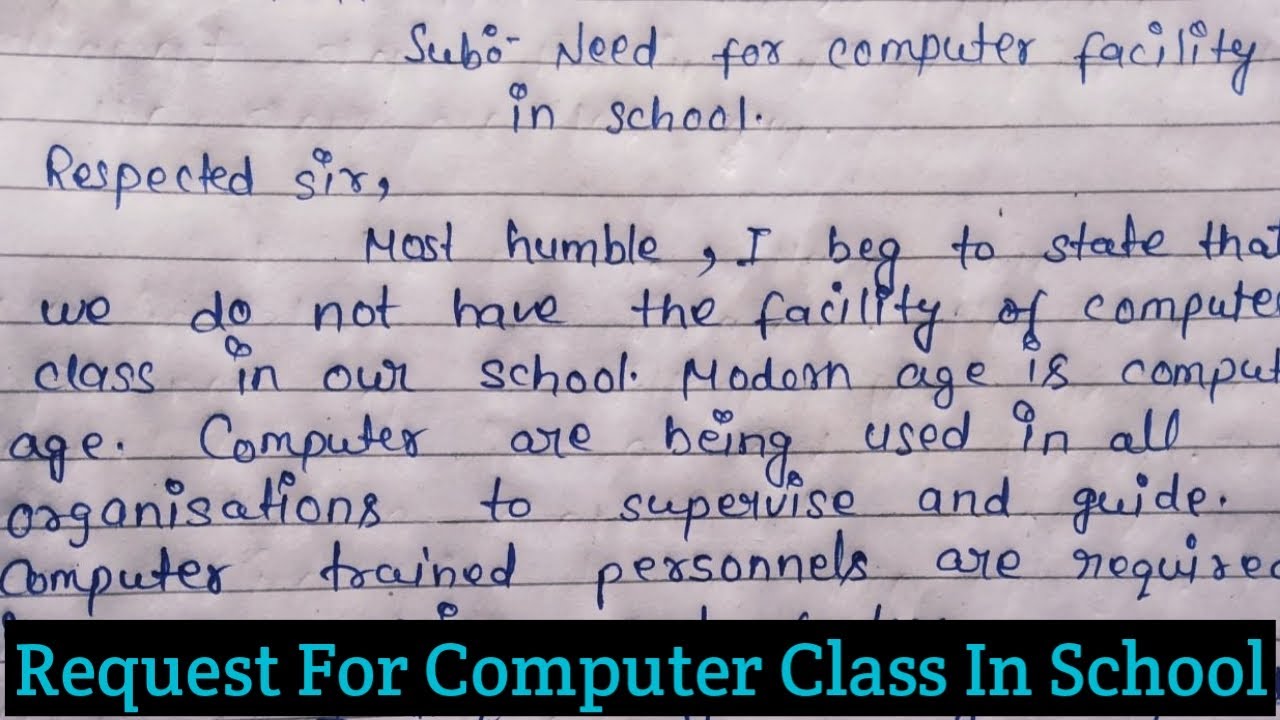 Sub:- Need for computer facility
in school.
Respected sir,
Most humble, I beg to state that
we do not have the facility of compute
class in our school. Modern age is comput
age. Computer are being used in all
organisations to supervise and guide.
Computer trained personnels are require
Request For Computer Class In School